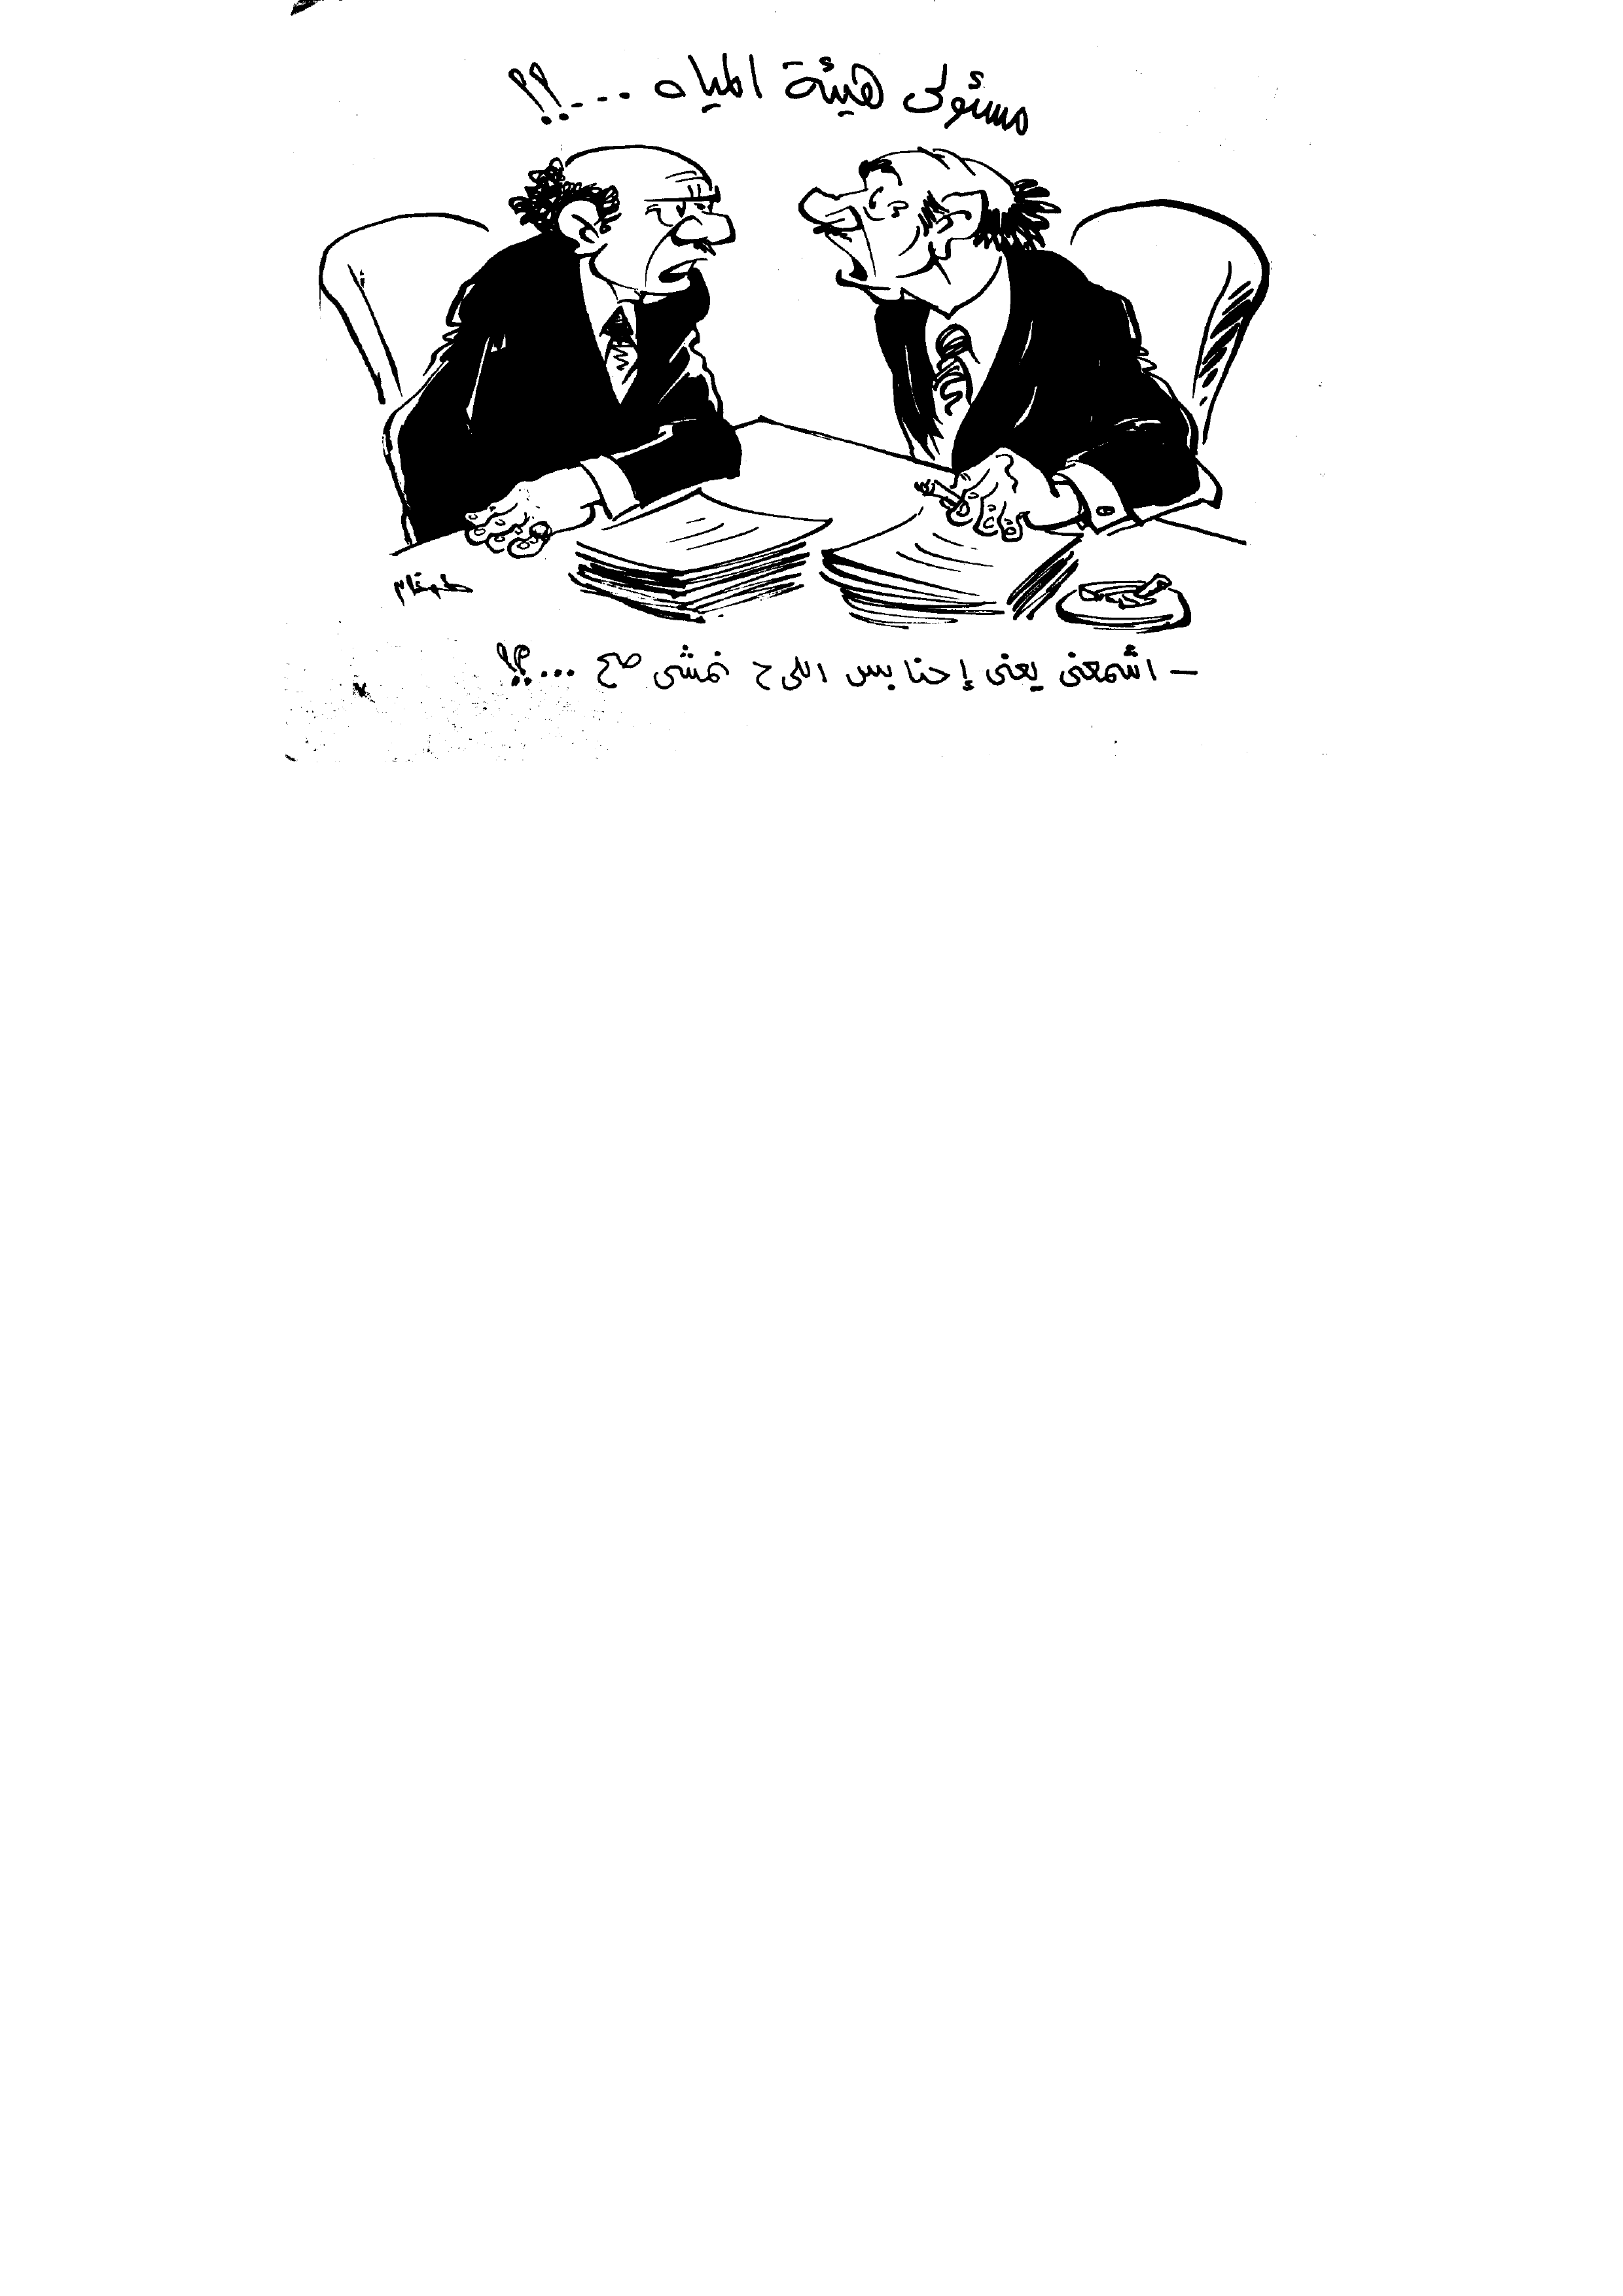 مسئولى هيئة المياه ...!!
– اشمعنى يعنى إحنا بس اللى ح نمشى صح ...؟!